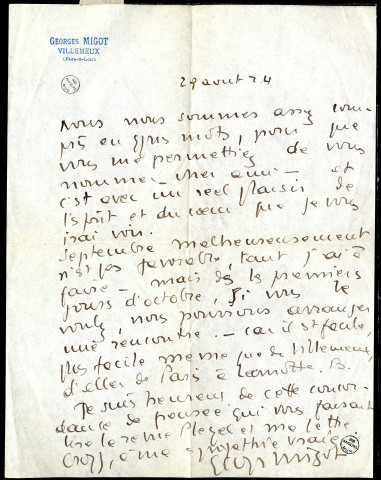 GEORGES MIGOT
VILLEMEUX
(Eure-&-Loir)
29 aout 24
Nous nous sommes assez com-
pris en qqs mots, pour que
vous me permettiez de vous
nommer cher ami — et
c'est avec un réel plaisir de
l'esprit et du cœur que je vous
irai voir.
Septembre malheureusement
n'est pas favorable, tant j'ai à
faire — mais dès les premiers
jours d'octobre, si vous le
voulez, nous pourrions arranger
une rencontre. — car il est facile,
plus facile même que de Villemeux,
d'aller de Paris à Lamotte. B.
Je suis heureux de cette concor-
dance de pensée qui vous faisant
lire la revue Pleyel et me lettre
Croyez à ma sympathie vraie.
Georges Migot